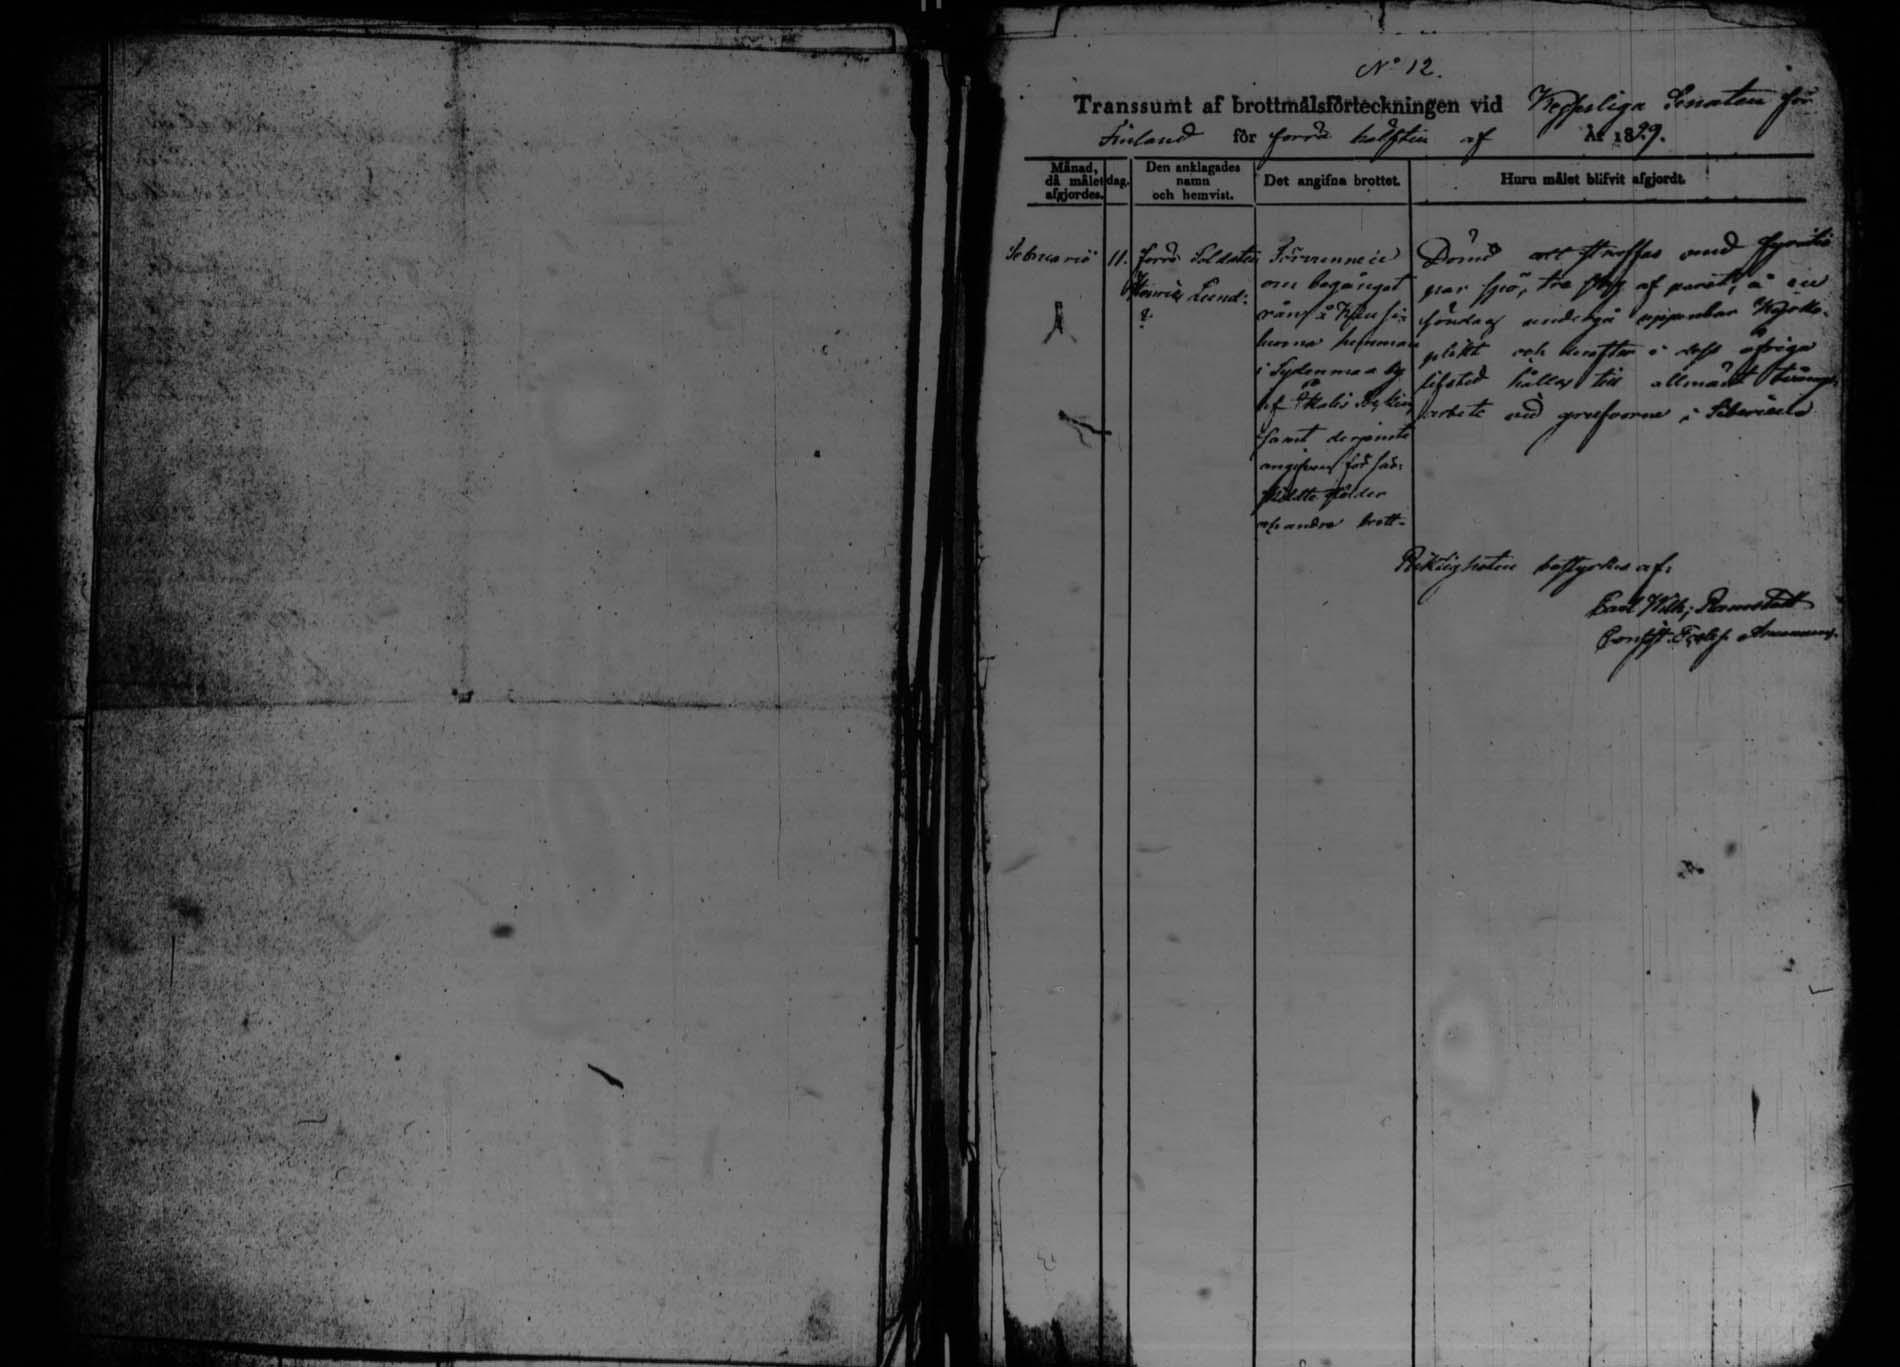 No 12.
Transsumt af brottmålsförteckningen vid Kejserliga Senaten för
Finland för förra hälften af År 1859.
Månad, då målet afgjordes.
dag.
Den anklagades namn och hemvist.
Det angifna brottet.
Huru målet blifvit afgjordt.
Februarii
11.
förra Soldaten
Henric Lund:
Förvunnen
om begånget
rån å
hemman
i Sydenmaa by
af Socken,
samt derjemte
angifven för sär:
skildta
andra brott.
Dömd att straffas med fyratio
par spö, tre slag af paret, å en
söndag undergå uppenbar Kyrko-
plikt och derefter i dess öfriga
lifstid hållas till allmänt tvångs-
arbete vid grufvorna i Siberien
Riktigheten bestyrkes af:
Carl Wilh: Ramstedt